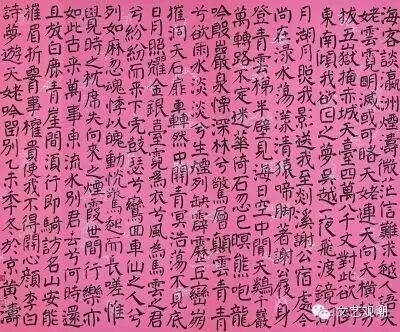 海客談瀛洲煙濤微茫信難求越人語天
姥雲霓明滅或可睹天姥連天向天橫勢
拔五嶽掩赤城天臺四萬八千丈對此欲倒
東南傾我欲因之夢吳越一夜飛渡鏡湖
月湖月照我影送我至剡溪謝公宿處今
尚在淥水蕩漾清猿啼腳著謝公屐身
登青雲梯半壁見海日空中聞天雞千巖
萬轉路不定迷花倚石忽已暝熊咆龍
吟殷巖泉慄深林兮驚層巔雲青青
兮欲雨水淡淡兮生煙列缺霹靂丘巒崩
摧洞天石扉訇然中開青冥浩蕩不見底
日月照耀金銀臺霓為衣兮風為馬雲之君
兮紛紛而來下虎鼓瑟兮鸞回車仙之人兮
列如麻忽魂悸以魄動怳驚起而長嗟惟
覺時之枕席失向來之煙霞世間行樂亦
如此古來萬事東流水別君去兮何時還
且放白鹿青崖間須行即騎訪名山安能
摧眉折腰事權貴使我不得開心顏李白
詩夢遊天姥吟留別乙未季冬於京黃濤
文艺观潮